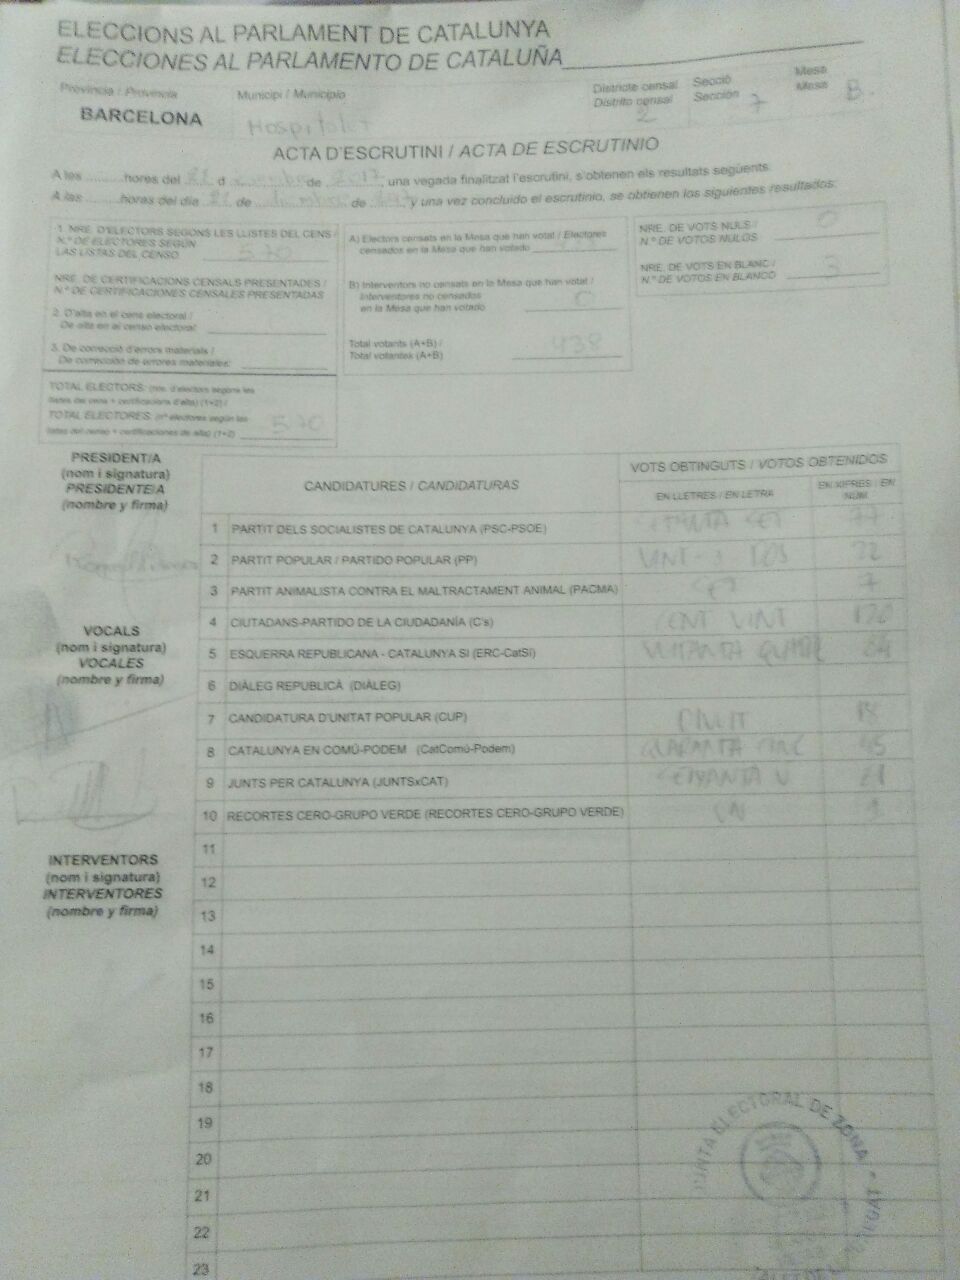 ELECCIONS AL PARLAMENT DE CATALUNYA
ELECCIONES AL PARLAMENTO DE CATALUÑA
Província / Provincia
BARCELONA
Municipi / Municipio
Hospitalet
Districte censal
Distrito censal
2
Secció
Sección
7
Mesa
Mesa
B.
ACTA D'ESCRUTINI / ACTA DE ESCRUTINIO
A les ..........hores del 21 d de 2017, una vegada finalitzat l'escrutini, s'obtenen els resultats següents:
A las ..........horas del día 21 de de y una vez concluido el escrutinio, se obtienen los siguientes resultados:
1. NRE. D'ELECTORS SEGONS LES LLISTES DEL CENS /
N.º DE ELECTORES SEGÚN
LAS LISTAS DEL CENSO 570
NRE. DE CERTIFICACIONS CENSALS PRESENTADES /
N.º DE CERTIFICACIONES CENSALES PRESENTADAS
2. D'alta en el cens electoral /
De alta en el censo electoral:
3. De correcció d'errors materials /
De corrección de errores materiales:
TOTAL ELECTORS: (nre. d'electors segons les
llistes del cens + certificacions d'alta) (1+2) /
TOTAL ELECTORES: (nº electores según las
listas del censo + certificaciones de alta) (1+2) 570
A) Electors censats en la Mesa que han votat / Electores
censados en la Mesa que han votado
B) Interventors no censats en la Mesa que han votat /
Interventores no censados
en la Mesa que han votado 0
Total votants (A+B) /
Total votantes (A+B) 438
NRE. DE VOTS NULS /
N.º DE VOTOS NULOS 0
NRE. DE VOTS EN BLANC /
N.º DE VOTOS EN BLANCO 3
PRESIDENT/A
(nom i signatura)
PRESIDENTE/A
(nombre y firma)
VOCALS
(nom i signatura)
VOCALES
(nombre y firma)
INTERVENTORS
(nom i signatura)
INTERVENTORES
(nombre y firma)
CANDIDATURES / CANDIDATURAS
VOTS OBTINGUTS / VOTOS OBTENIDOS
EN LLETRES / EN LETRA
EN XIFRES / EN NÚM.
1 PARTIT DELS SOCIALISTES DE CATALUNYA (PSC-PSOE) SETANTA SET 77
2 PARTIT POPULAR / PARTIDO POPULAR (PP) VINT-I DOS 22
3 PARTIT ANIMALISTA CONTRA EL MALTRACTAMENT ANIMAL (PACMA) SET 7
4 CIUTADANS-PARTIDO DE LA CIUDADANÍA (C's) CENT VINT 120
5 ESQUERRA REPUBLICANA - CATALUNYA SI (ERC-CatSí) VUITANTA QUATRE 84
6 DIÀLEG REPUBLICÀ (DIÀLEG)
7 CANDIDATURA D'UNITAT POPULAR (CUP) DIVUIT 18
8 CATALUNYA EN COMÚ-PODEM (CatComú-Podem) QUARANTA CINC 45
9 JUNTS PER CATALUNYA (JUNTSxCAT) SEIXANTA U 61
10 RECORTES CERO-GRUPO VERDE (RECORTES CERO-GRUPO VERDE) UN 1
11
12
13
14
15
16
17
18
19
20
21
22
23
JUNTA ELECTORAL DE ZONA